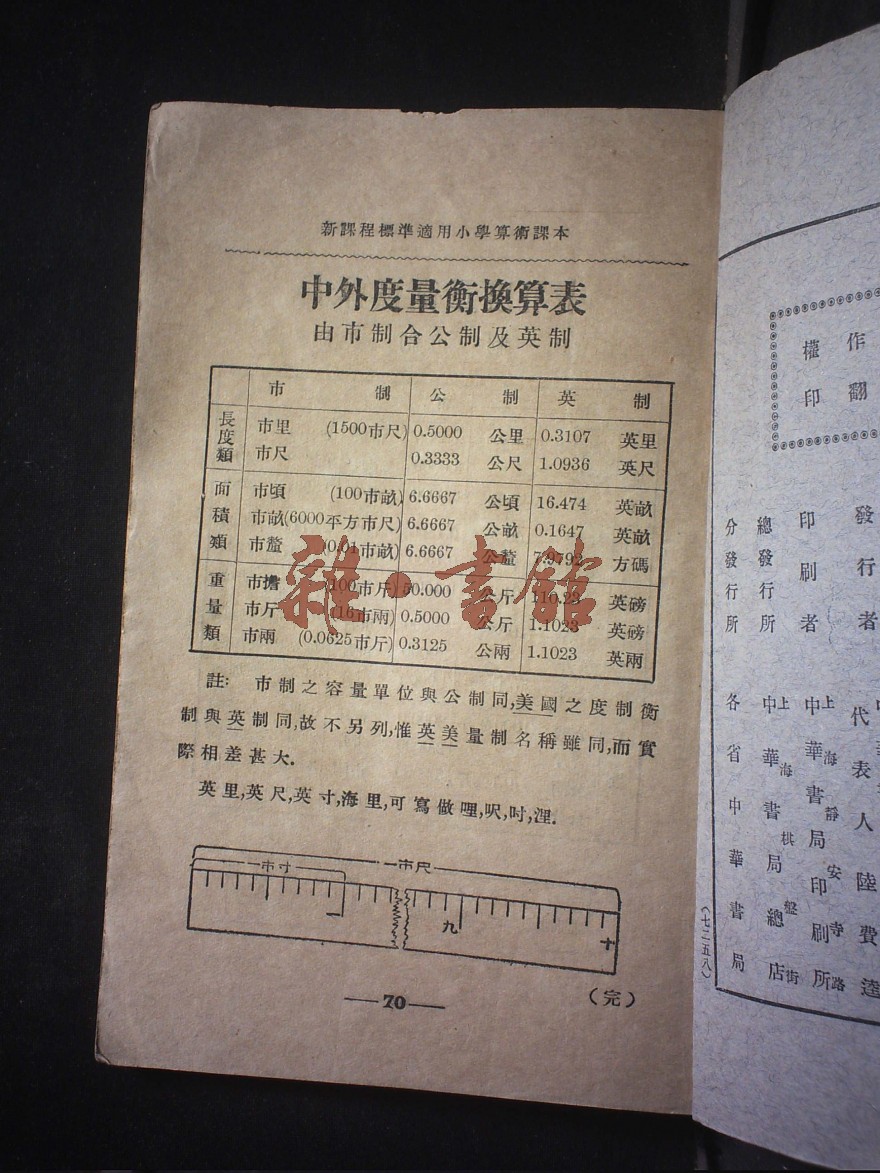 新課程標準適用小學算術課本
中外度量衡換算表
由市制合公制及英制
市制 公制 英制
長度類 市里 (1500市尺) 0.5000 公里 0.3107 英里
市尺 0.3333 公尺 1.0936 英尺
面積類 市頃 (100市畝) 6.6667 公頃 16.474 英畝
市畝(6000平方市尺) 6.6667 公畝 0.1647 英畝
市釐 (0.01市畝) 6.6667 公釐 7.9792 方碼
重量類 市擔 (100市斤) 50.000 公斤 110.23 英磅
市斤 (16市兩) 0.5000 公斤 1.1023 英磅
市兩 (0.0625市斤) 0.3125 公兩 1.1023 英兩
雜·書館
註: 市制之容量單位與公制同,美國之度制衡
制與英制同,故不另列,惟英美量制名稱雖同,而實
際相差甚大.
英里,英尺,英寸,海里,可寫做哩,呎,吋,浬.
一市尺
一市寸
一 九 十
—70—
(完)
作
翻
權
印
發行者
代表人陸費逵
印刷者
上海靜安寺路
中華書局印刷所
總發行所
上海棋盤街
中華書局總店
分發行所
各省中華書局
(七二五八)